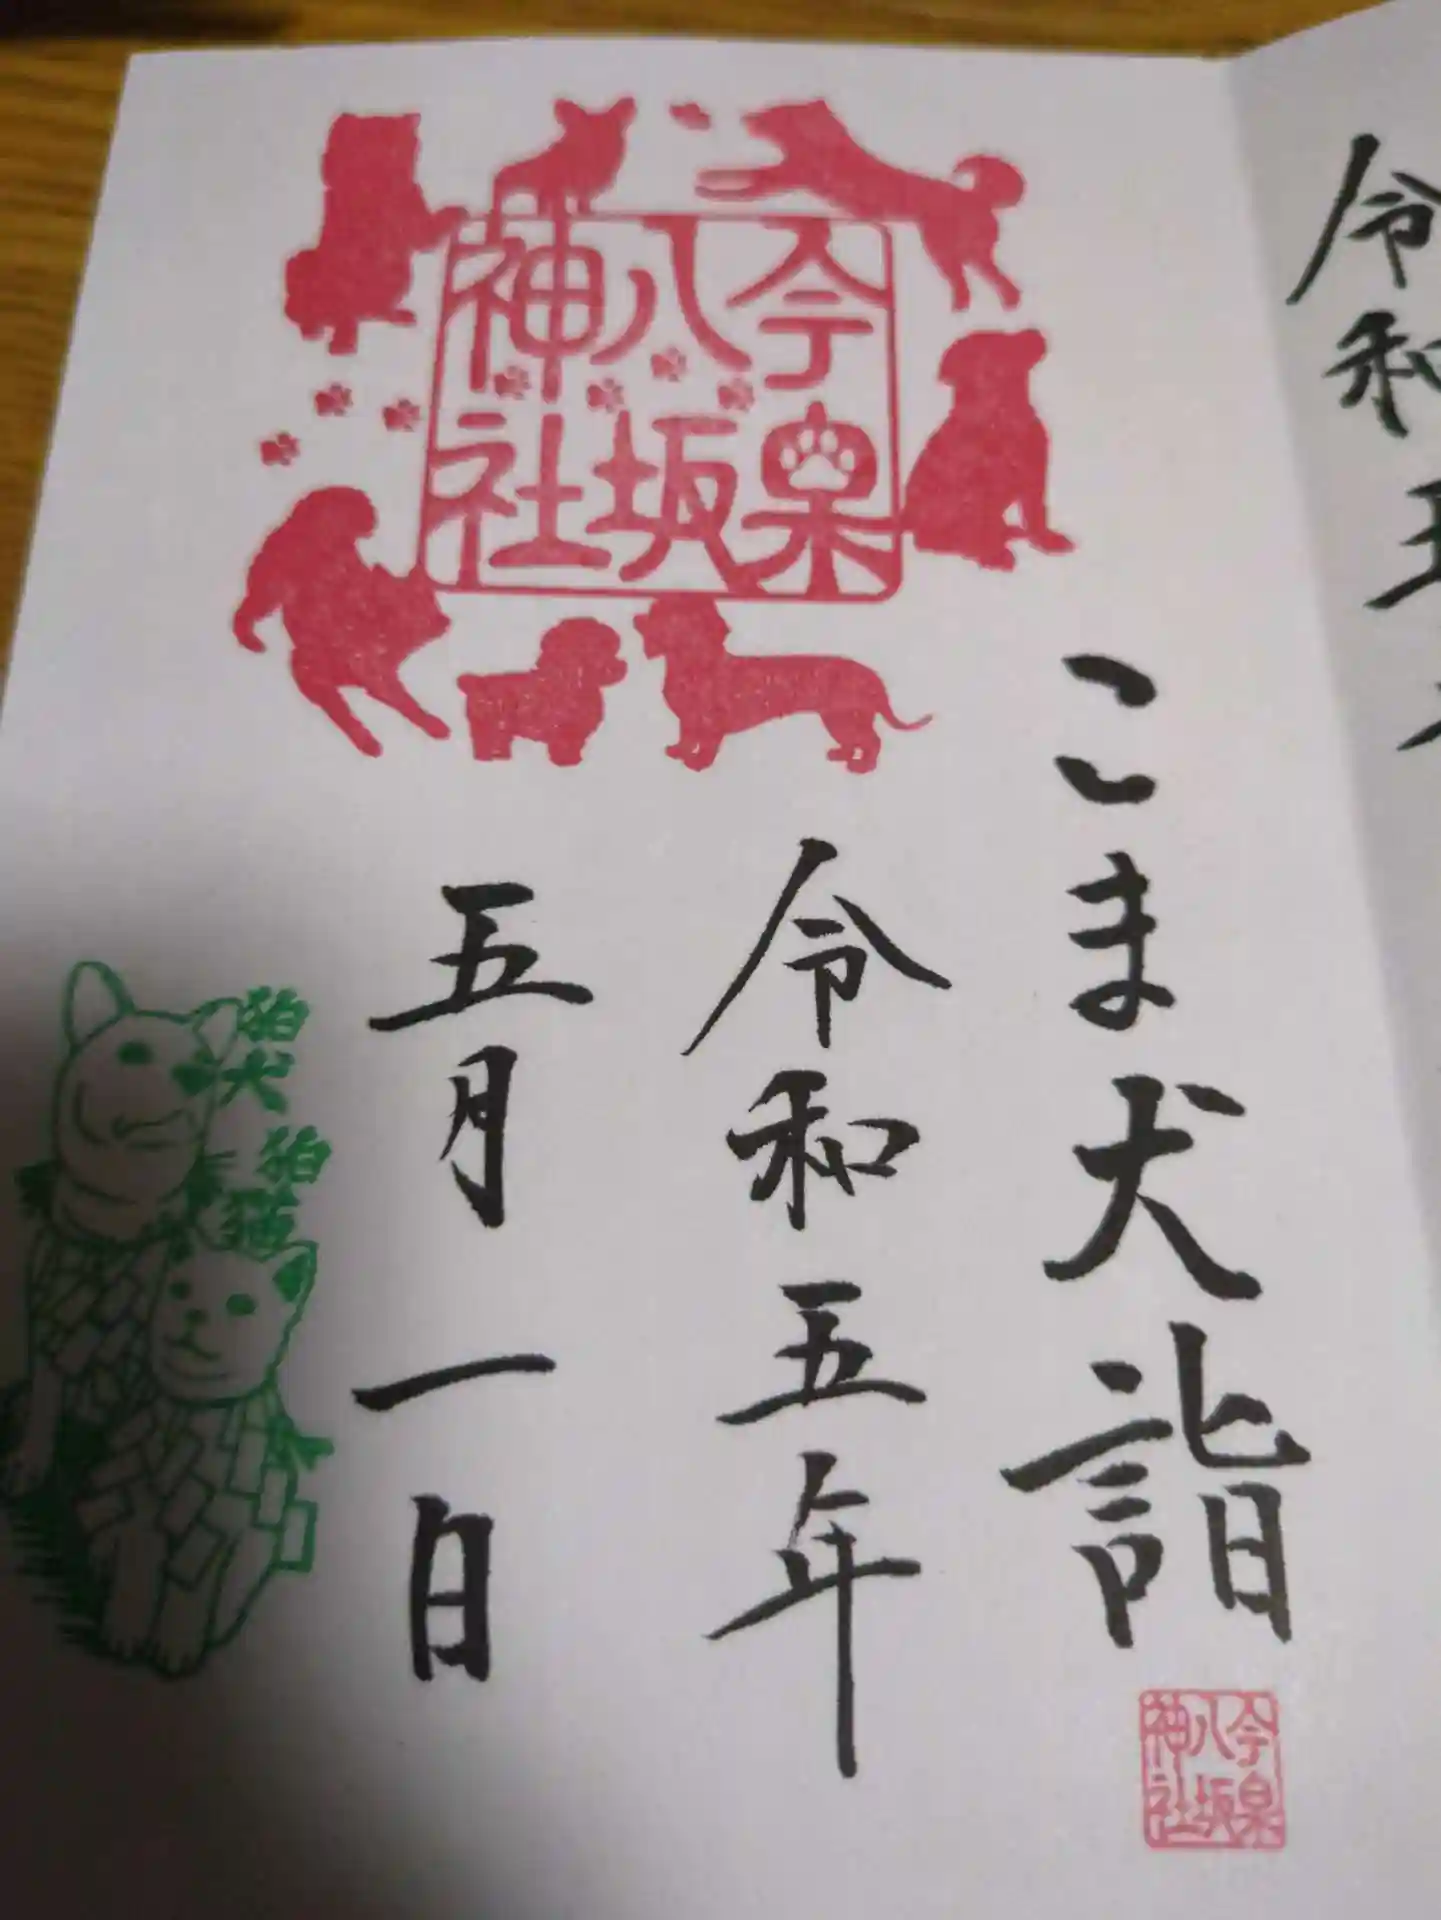 令和
こま犬詣
令和五年
五月一日
今泉
八坂
神社
狛犬
狛猫
今泉
八坂
神社